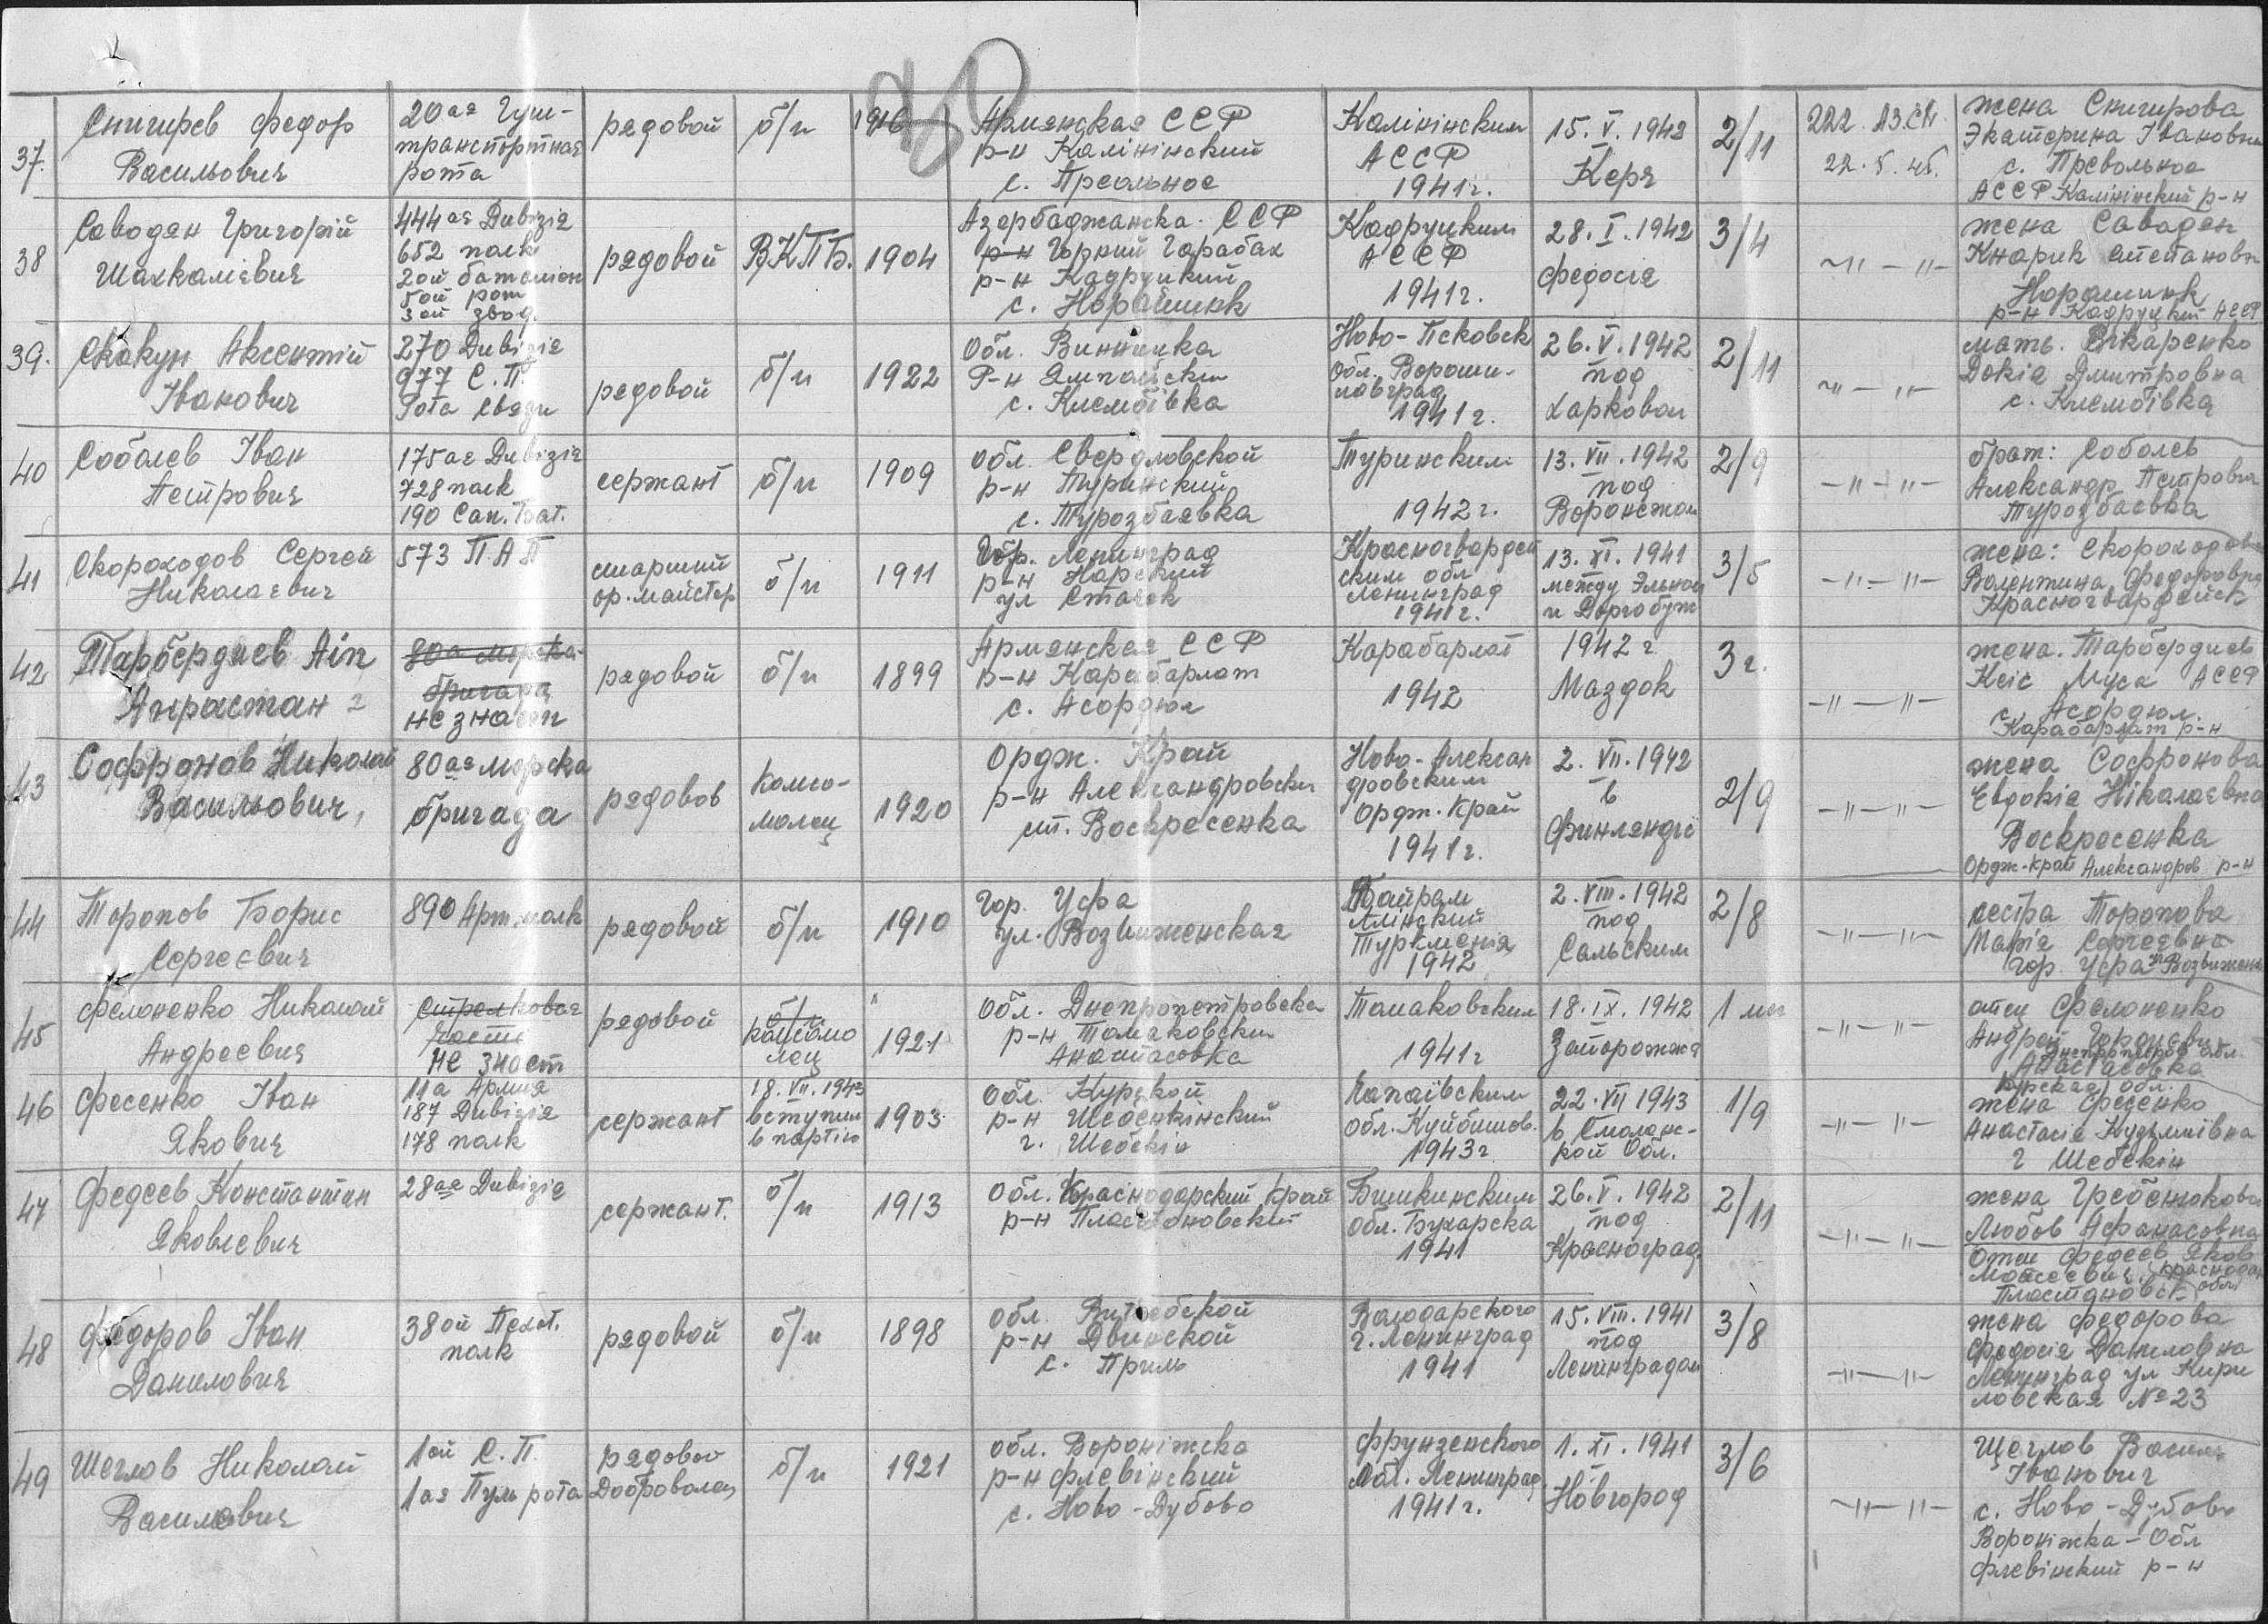 37. Снигирев Федор Васильович
20ая Гуж-
транспортная
рота
рядовой
б/п
1916
Армянская ССР
р-н Калінінский
с. Преольное
Калінінским
АССР
1941г.
15. V. 1942
Керч
2/11
222. АЗ.СП.
22. 5. 45.
жена Снигирова
Экатерина Івановна
с. Превольное
АССР Калінінский р-н
38 Саводян Григорій
Шахкалієвич
444ая Дивізія
652 полк
2ой баталіон
5ой рот
3ой звод.
рядовой
ВКПБ.
1904
Азербаджанска. ССР
р-н Горний Гарабах
р-н Кадруцкий
с. Норашинк
Кадруцким
АССР
1941г.
28. I. 1942
Федосія
3/4
~"—"—
жена Савадян
Кнарик Степановн
Норашинк
р-н Кадруцкий АССР
39. Скакун Аксентій
Іванович
270 Дивізія
977 С.П.
Рота Связи
рядовой
б/п
1922
Обл. Винницка
Р-н Ямпольски
с. Клембівка
Ново-Псковск
обл. Вороши-
ловград
1941г.
26. V. 1942
под
Харковом
2/11
~"—"—
мать. Вікаренко
Докія Дмитровна
с. Клембівка
40 Соболев Іван
Петрович
175ая Дивізія
728 полк
190 Сап. Бат.
сержант
б/п
1909
обл. Свердловской
р-н Туринский
с. Турозбаевка
Туринским
1942г.
13. VII. 1942
под
Воронежом
2/9
—"—"—
брат: Соболев
Александр Петрович
Турозбаевка
41 Скороходов Сергей
Николаевич
573 ПАП
старший
ор. майстер
б/п
1911
Гор. Ленинград
р-н Нарский
ул Стачек
Красногвардей
ским обл
Ленинград
1941г.
13. XI. 1941
между Эльной
и Доргобуж
3/5
—"—"—
жена: Скороходова
Валентина Федоровна
Красногвардейск
42 Тарбердиев Аіп
Анрастан
80а морска
бригада
не знает
рядовой
б/п
1899
Армянская ССР
р-н Карабарлат
с. Асордюл
Карабарлат
1942
1942 г.
Маздок
3 г.
—"—"—
жена. Тарбердиев
Ксіс Муса АССР
с. Асордюл.
Карабарлат р-н
43 Софронов Николай
Васильович,
80ая морска
бригада
рядовов
Комсо-
молец
1920
Ордж. Край
р-н Александровски
ст. Воскресенка
Ново-Алексан
дровским
Ордж. Край
1941г.
2. VII. 1942
в
Финляндії
2/9
—"—"—
жена Софронова
Евдокія Ніколаєвна
Воскресенка
Ордж-край Александров р-н
44 Торопов Борис
Сергеевич
890 Арт.полк
рядовой
б/п
1910
Гор. Уфа
ул. Возвиженская
Байрам
Алінский
Туркменія
1942
2. VIII. 1942
под
Сальским
2/8
—"—"—
сестра Торопова
Марія Сергеевна
Гор. Уфа ул Возвижен
45 Фелоненко Николай
Андреевич
Стрелковая
часть
Не знает
рядовой
б/п
комсомо
лец
1921
Обл. Днепропетровска
р-н Томаковски
Анастасовка
Томаковским
1941г
18. IX. 1942
Запорожжа
1 ми
—"—"—
отец Фелоненко
Андрей Гордиєвич
Днепропетров обл.
Анастасовка
46 Фесенко Іван
Якович
11а Армия
187 Дивізія
178 полк
сержант
18. VII. 1943
вступил
в партію
1903
обл. Курской
р-н Шебекінский
г. Шебекін
Чапаївским
обл. Куйбишов.
1943г
22. VII 1943
в Смоленс-
кой Обл.
1/9
—"—"—
Курская обл.
жена Фесенко
Анастасія Кузьмівна
г Шебекін
47 Федеев Константин
Яковлевич
28ая Дивізія
сержант.
б/п
1913
Обл. Краснодарский край
р-н Пластоновский
Бшикинским
обл. Бухарска
1941
26. V. 1942
под
Красноград
2/11
—"—"—
жена Гребенюкова
Любов Афанасовна
Отец Федеев Яков
Моисеевич. Краснодар
Пластановск обл
48 Федоров Іван
Данилович
38ой Пехот.
полк
рядовой
б/п
1898
обл. Витебской
р-н Двинской
с. Приль
Володарского
г. Ленинград
1941
15. VIII. 1941
под
Ленинградом
3/8
—"—"—
жена Федорова
Федосія Даниловна
Ленинград ул Кири
ловская №23
49 Шеглов Николай
Василович
1ой С.П.
1ая Пуль рота
рядовой
Доброволец
б/п
1921
обл. Вороніжска
р-н Флевінский
с. Ново-Дубово
Фрунзенского
обл. Ленинград
1941г.
1. XI. 1941
Новгород
3/6
~"—"—
Щеглов Василь
Іванович
с. Ново-Дубово
Вороніжка-Обл
Флевінский р-н